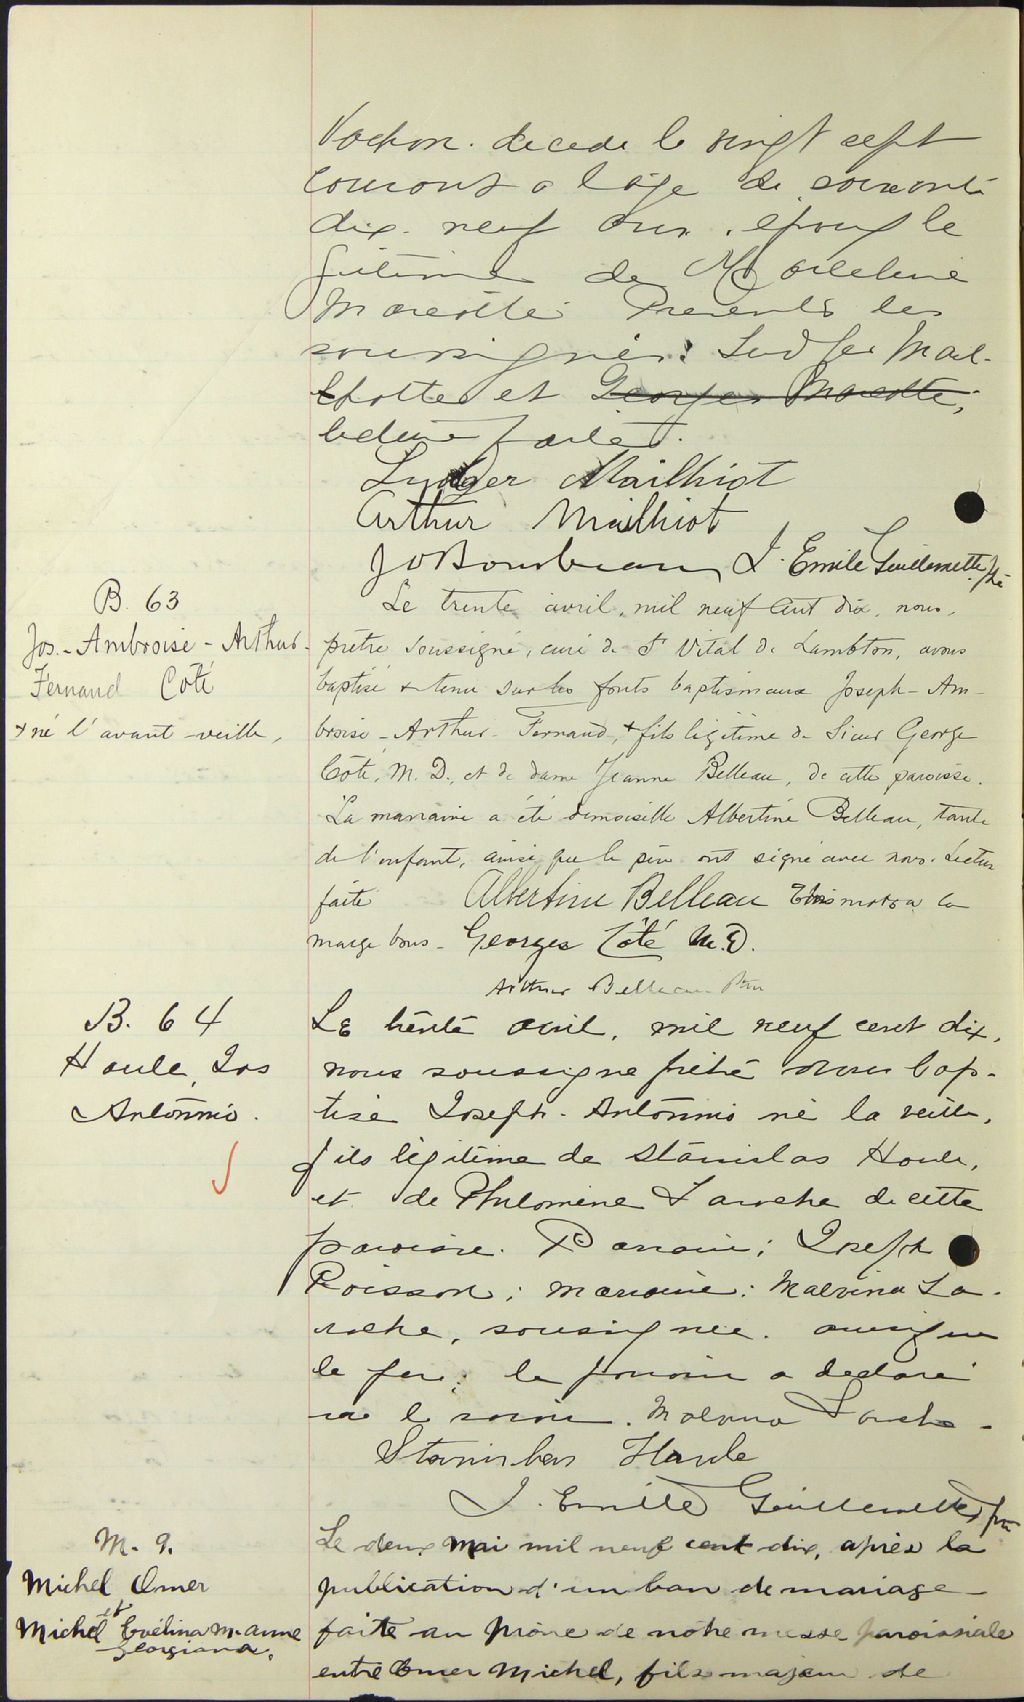 Vachon. décédé le vingt sept
courant a l'âge de soixante
dix-neuf ans. époux lé
gitime de Madeleine
Marcotte Presents les
soussignés: Ludger Mail-
hotte et Georges Marcotte;
lecture faite.
Ludger Mailhiot
Arthur Mailhiot
J. Emile Guillemette ptre
B. 63
Jos.-Ambroise-Arthur-
Fernand Coté
+ né l'avant-veille,
Le trente avril, mil neuf cent dix, nous,
prêtre soussigné, curé de St Vital de Lambton, avons
baptisé & tenu sur les fonts baptismaux Joseph-Am-
broise-Arthur-Fernand, + fils légitime de Sieur George
Côté, M.D., et de dame Jeanne Belleau, de cette paroisse.
La marraine a été demoiselle Albertine Belleau, tante
de l'enfant, ainsi que le père ont signé avec nous. Lecture
faite Albertine Belleau Trois mots en la
marge bons - Georges Côté M.D.
Arthur Belleau Ptre
B. 64
Houle, Jos
Antonnio.
Le trente avril, mil neuf cent dix,
nous soussigné prêtre avons bap-
tisé Joseph-Antonnio né la veille,
fils légitime de Stanislas Houle,
et de Philomène Laroche de cette
paroisse. Parrain; Joseph
Poisson; marraine: Malvina La-
roche, soussignée. ainsi que
le père; le parrain a déclaré
ne le savoir. Malvina Laroche -
Stanislas Houle
J. Emile Guillemette ptre
M. 9.
Michel Omer
et
Michel Evélina M-Anne
Georgiana.
Le deux mai mil neuf cent dix, après la
publication d'un ban de mariage
faite au prône de notre messe paroissiale
entre Omer Michel, fils majeur de